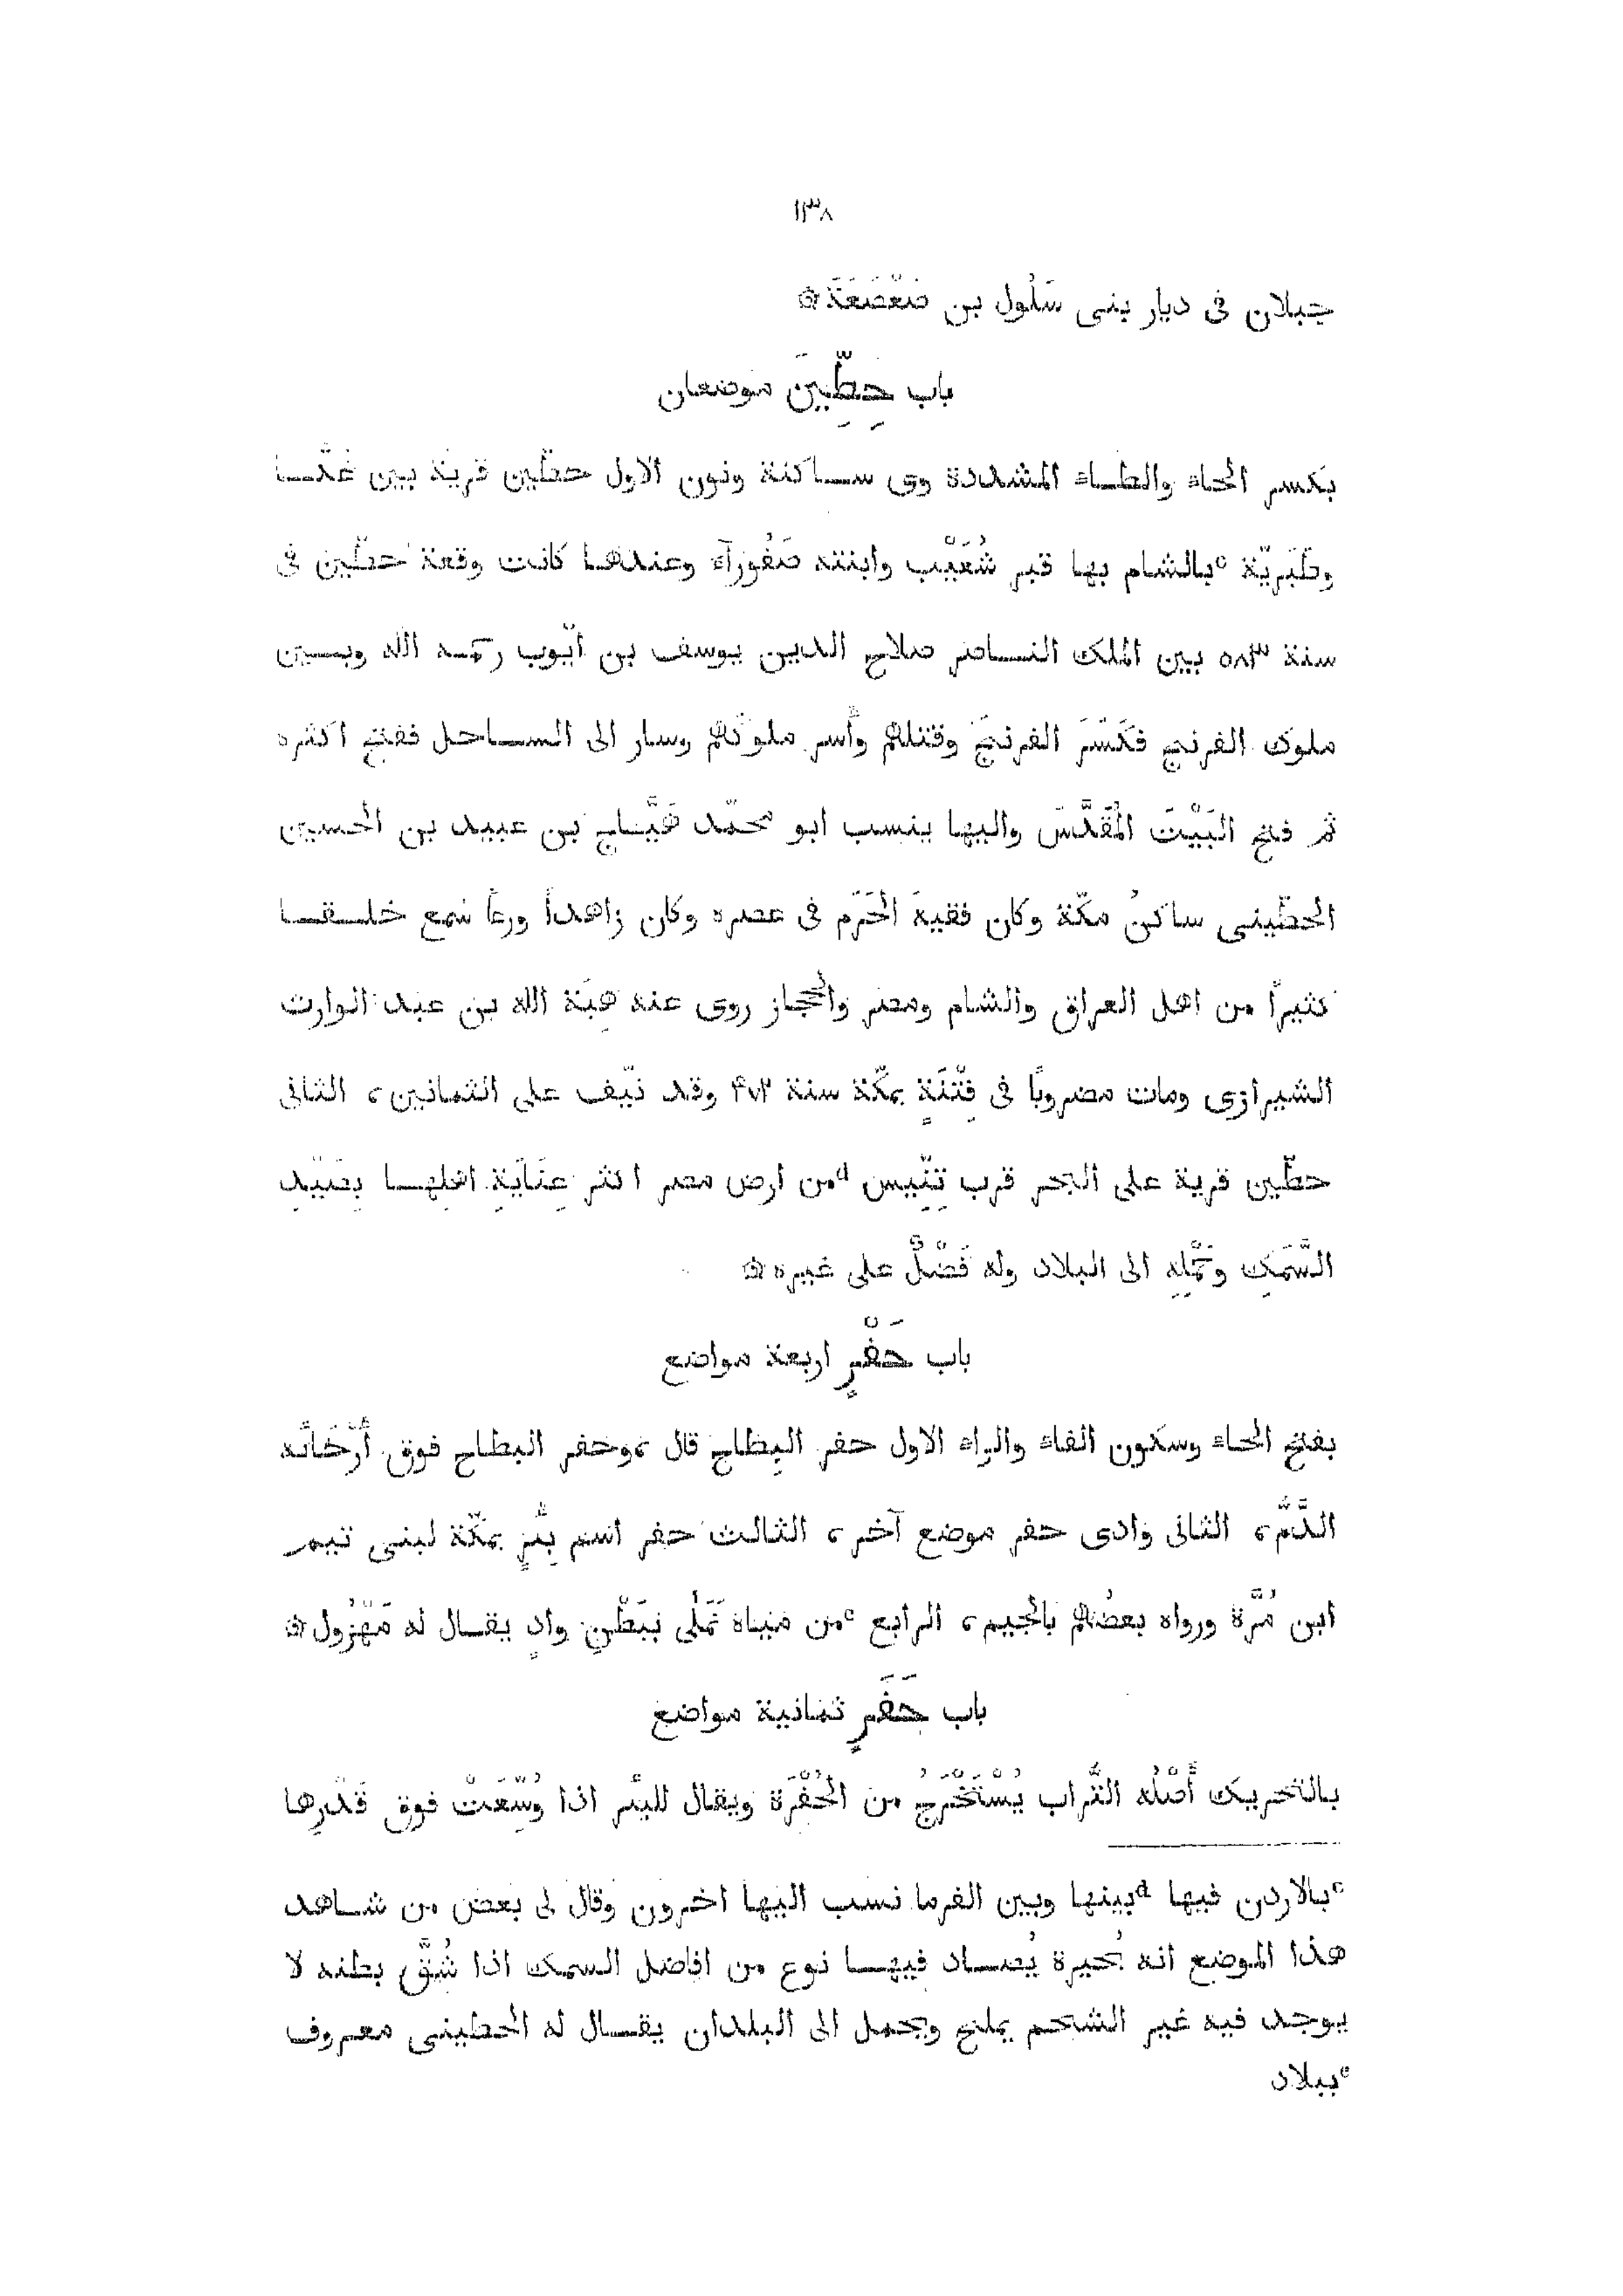 ١٣٨
جبلان فى ديار بنى سَلُول بن صَعْصَعَةَ ۞
باب حِطِّينَ موضعان
بكسر الحاء والطاء المشددة وى ساكنة ونون الاول حطّين قرية بين عَكّا
وطَبَرِيّة ᶜبالشام بها قبر شُعَيْب وابنته صَفُورآء وعندها كانت وقعة حطّين فى
سنة ٥٨٣ بين الملك الناصر صلاح الدين يوسف بن ايّوب رحمه الله وبين
ملوك الفرنج فكَسَرَ الفرنجَ وقتلهم وأسر ملوكهم وسار الى الساحل ففتح اكثره
ثم فتح البَيْتَ المُقَدَّسَ واليها ينسب ابو محمّد هَيَّاج بن عبيد بن الحسين
الحطّينى ساكنُ مكّة وكان فقيهَ الحَرَم فى عصره وكان زاهداً ورعاً سمع خلقا
كثيراً من اهل العراق والشام ومصر والحجاز روى عنه هِبَة الله بن عبد الوارث
الشيرازى ومات مضروباً فى فِتْنَةٍ بمكّة سنة ۴٧٢ وقد نيّف على الثمانين، الثانى
حطّين قرية على البحر قرب تِنِّيس ᵈمن ارض مصر اكثر عِنَايَةِ اهلها بصَيْدِ
السَّمَكِ وحَمْلِهِ الى البلاد وله فَضْلٌ على غيره ۞
باب حَفْرٍ اربعة مواضع
بفتح الحاء وسكون الفاء والراء الاول حفر البِطَاح قال ،وحفر البطاح فوق أَرْجَائه
الدَّمُ، الثانى وادى حفر موضع آخر، الثالث حفر اسم بِئْرٍ بمكّة لبنى تيم
ابن مُرَّة ورواه بعضُهم بالجيم، الرابع ᵉمن مياه نَمَلَى ببَطْنِ وادٍ يقال له مَهْزُول ۞
باب حَفَرٍ ثمانية مواضع
بالتحريك أَصْلُه التُّراب يُسْتَخْرَجُ من الحُفْرَة ويقال للبئر اذا وُسِّعَتْ فوق قَدْرِها
ᶜبالاردن فيها ᵈبينها وبين الفرما نسب اليها اخرون وقال لى بعض من شاهد
هذا الموضع انه بُحيرة يُصاد فيها نوع من افاضل السمك اذا شُقَّ بطنه لا
يوجد فيه غير الشحم يملح ويحمل الى البلدان يقال له الحطينى معروف
ᵉببلاد